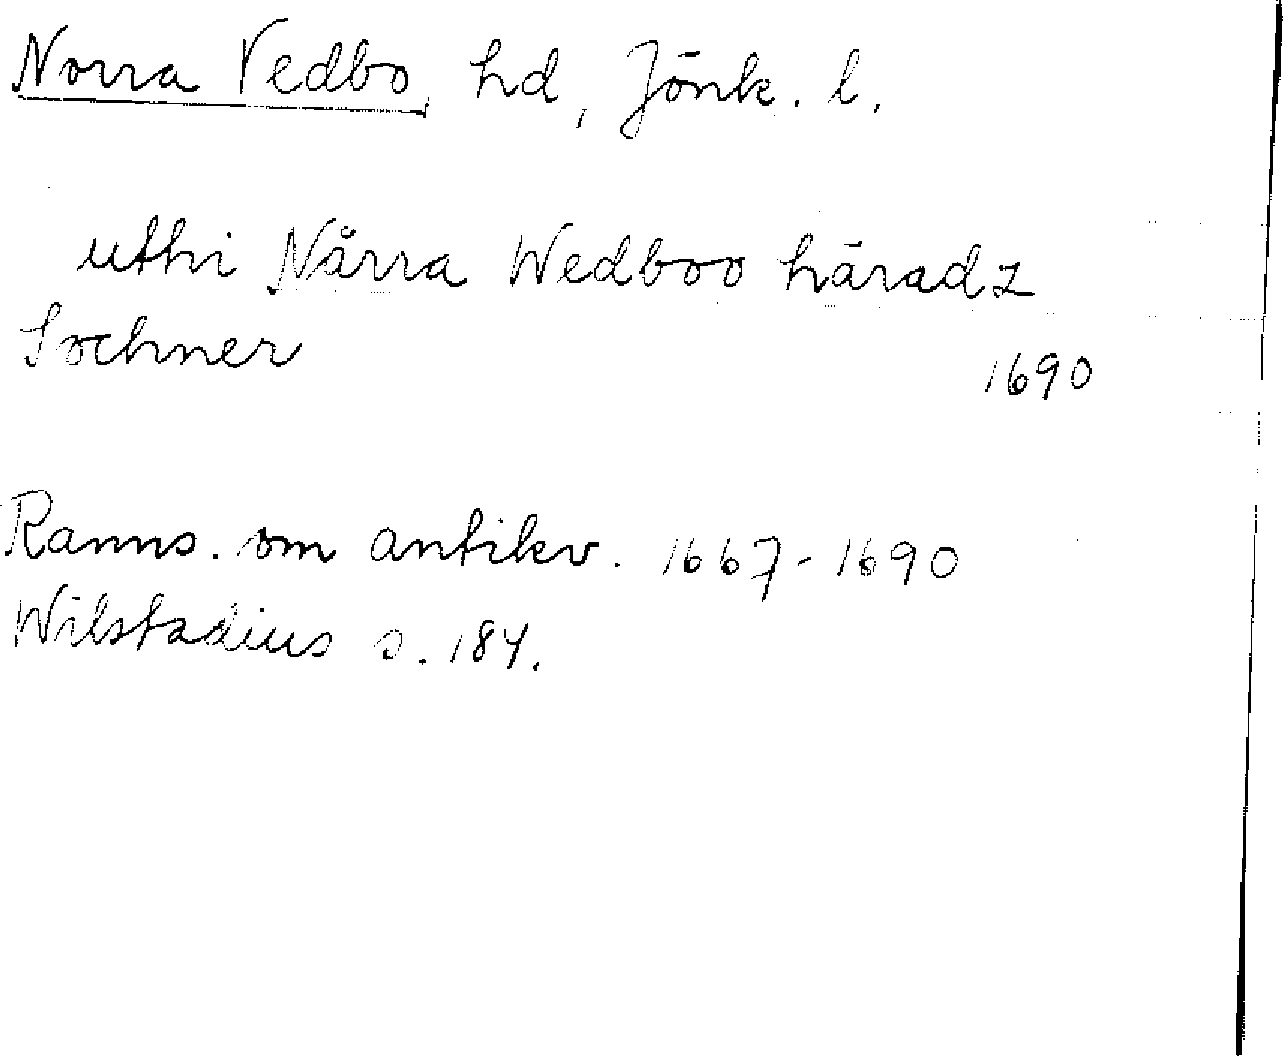 Norra Vedbo hd, Jönk. l.
uthi Nårra Wedboo häradz
Sochner
1690
Ranns. om antikv. 1667-1690
Wilstadius s. 184.